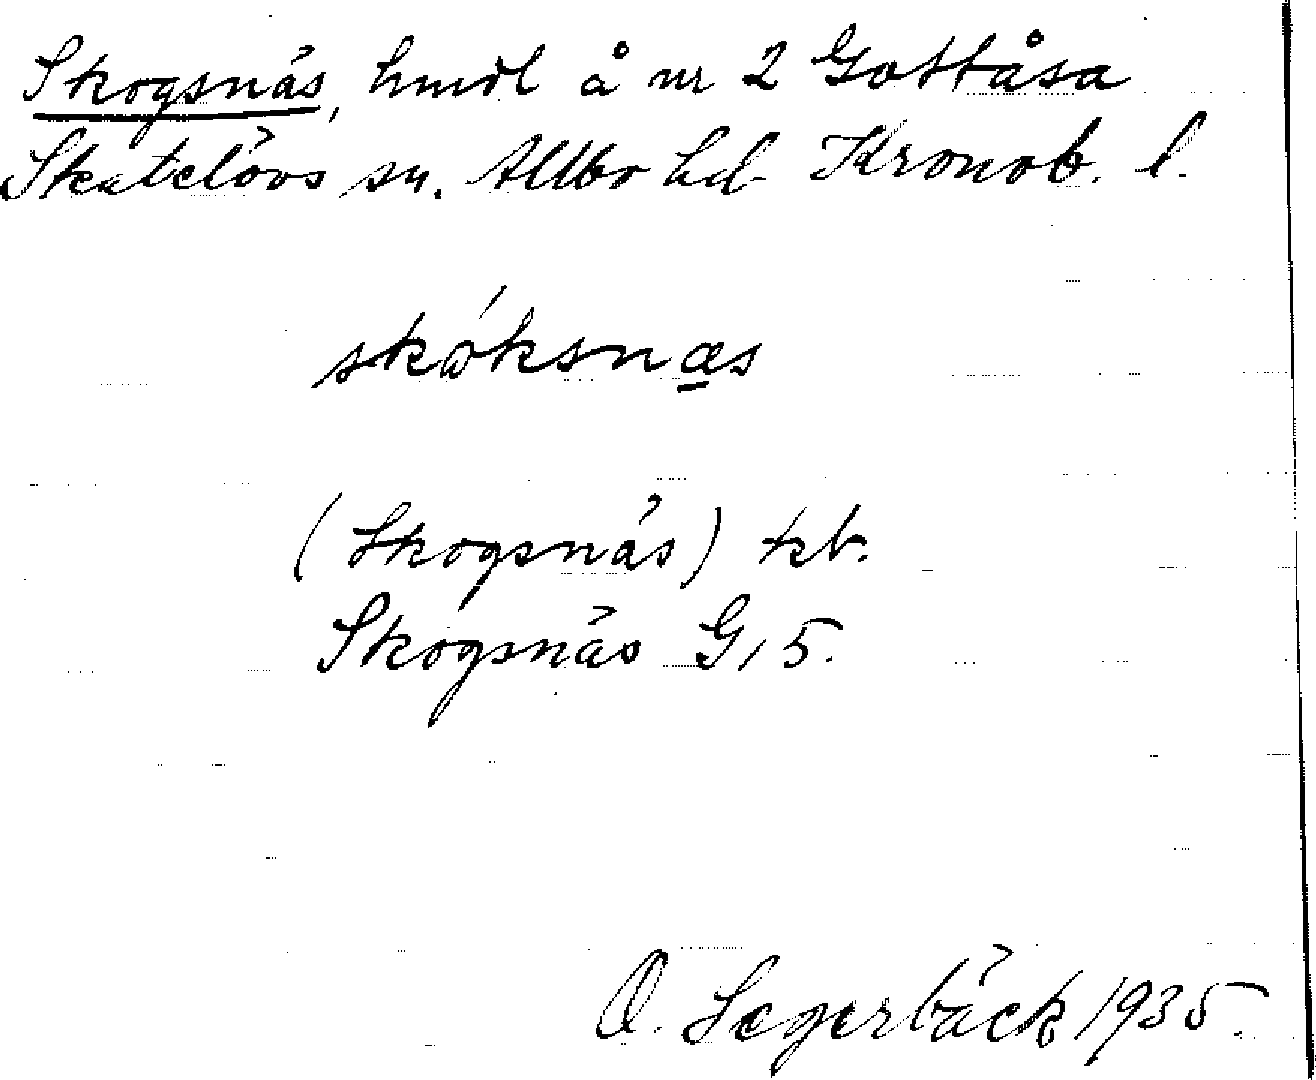 Skogsnäs, hmdl å nr 2 Gottåsa
Skatelövs sn. Allbo hd. Kronob. l.
skóksnæs
(Skogsnäs) kb.
Skogsnäs G, 5.
O. Segerbäck 1935.